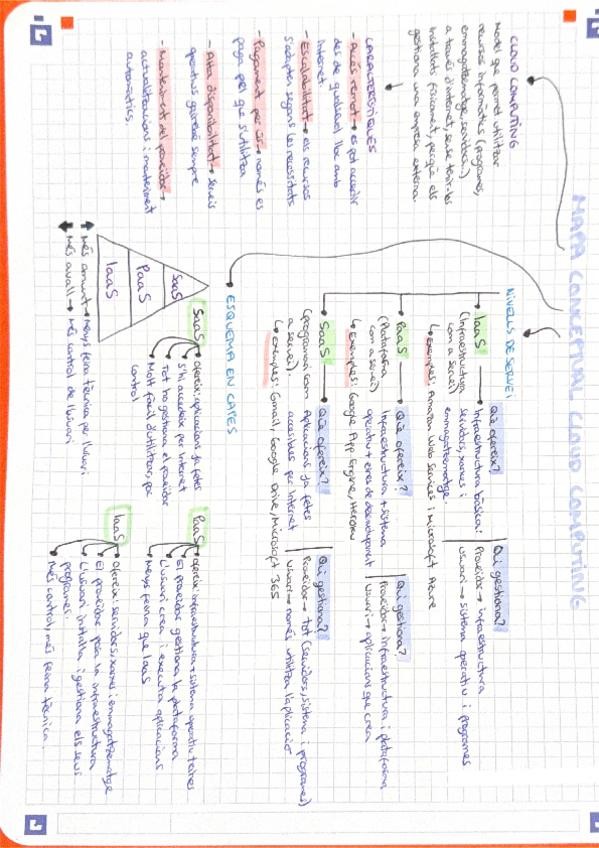 MAPA CONCEPTUAL CLOUD COMPUTING
CLOUD COMPUTING
Model que permet utilitzar
recursos informàtics (programes,
emmagatzematge, servidors...)
a través d'internet, sense tenir-los
instal·lats físicament, perquè els
gestiona una empresa externa.
CARACTERÍSTIQUES
- Accés remot → es pot accedir
des de qualsevol lloc amb
Internet
- Escalabilitat → els recursos
s'adapten segons les necessitats
- Pagament per ús → només es
paga pel que s'utilitza
- Alta disponibilitat → serveis
operatius gairebé sempre
- Manteniment del proveïdor →
actualitzacions i manteniment
automàtics.
NIVELLS DE SERVEI
IaaS
(Infraestructura
com a servei)
Què ofereix?
Infraestructura bàsica:
servidors, xarxes i
emmagatzematge.
Qui gestiona?
Proveïdor → infraestructura
usuari → sistema operatiu i programes
↳ exemples: Amazon Web Services i Microsoft Azure
PaaS
(Plataforma
com a servei)
Què ofereix?
Infraestructura + sistema
operatiu + eines de desenvolupament
Qui gestiona?
Proveïdor → infraestructura i plataforma
usuari → aplicacions que crea
↳ exemples: Google App Engine, Heroku
SaaS
(programari com
a servei).
Què ofereix?
Aplicacions ja fetes
accesibles per internet
Qui gestiona?
Proveïdor → tot (servidors, sistema i programes)
usuari → només utilitza l'aplicació
↳ exemples: Gmail, Google Drive, Microsoft 365
ESQUEMA EN CAPES
SaaS
PaaS
IaaS
Més amunt → menys feina tècnica per l'usuari
Més avall → més control de l'usuari
SaaS
ofereix: aplicacions ja fetes
s'hi accedeix per internet
Tot ho gestiona el proveïdor
Molt fàcil d'utilitzar, poc
control
PaaS
ofereix: infraestructura + sistema operatiu + eines
El proveïdor gestiona la plataforma
L'usuari crea i executa aplicacions
Menys feina que IaaS
IaaS
ofereix: servidors, xarxes i emmagatzematge
El proveïdor posa la infraestructura
L'usuari instal·la i gestiona els seus
programes.
Més control, més feina tècnica.